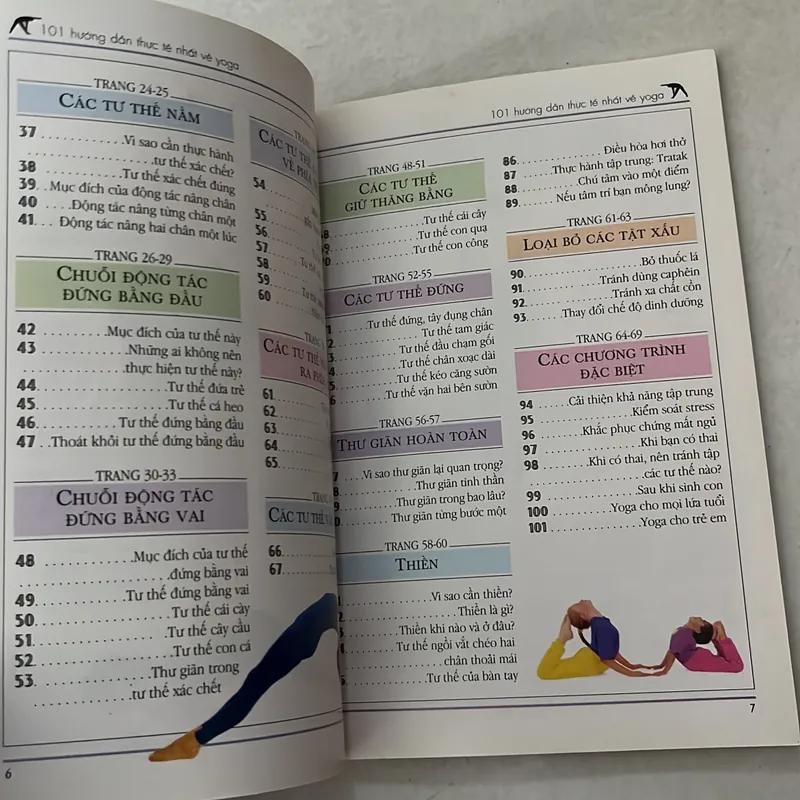 101 hướng dẫn thực tế nhất về yoga
TRANG 24-25
CÁC TƯ THẾ NẰM
37 Vì sao cần thực hành
tư thế xác chết?
38 Tư thế xác chết đúng
39 Mục đích của động tác nâng chân
40 Động tác nâng từng chân một
41 Động tác nâng hai chân một lúc
TRANG 26-29
CHUỖI ĐỘNG TÁC
ĐỨNG BẰNG ĐẦU
42 Mục đích của tư thế này
43 Những ai không nên
thực hiện tư thế này?
44 Tư thế đứa trẻ
45 Tư thế cá heo
46 Tư thế đứng bằng đầu
47 Thoát khỏi tư thế đứng bằng đầu
TRANG 30-33
CHUỖI ĐỘNG TÁC
ĐỨNG BẰNG VAI
48 Mục đích của tư thế
đứng bằng vai
49 Tư thế đứng bằng vai
50 Tư thế cái cày
51 Tư thế cây cầu
52 Tư thế con cá
53 Thư giãn trong
tư thế xác chết
6
CÁC TƯ THẾ
VỀ PHÍA
54
55
56
57
58
59
60
CÁC TƯ THẾ
RA PHÍA
61
62
63
64
65
CÁC TƯ THẾ
66
67
101 hướng dẫn thực tế nhất về yoga
TRANG 48-51
CÁC TƯ THẾ
GIỮ THĂNG BẰNG
Tư thế cái cây
Tư thế con quạ
Tư thế con công
TRANG 52-55
CÁC TƯ THẾ ĐỨNG
Tư thế đứng, tây dụng chân
Tư thế tam giác
Tư thế đầu chạm gối
Tư thế chân xoạc dài
Tư thế kéo căng sườn
Tư thế vặn hai bên sườn
TRANG 56-57
THƯ GIÃN HOÀN TOÀN
Vì sao thư giãn lại quan trọng?
Thư giãn tinh thần
Thư giãn trong bao lâu?
Thư giãn từng bước một
TRANG 58-60
THIỀN
Vì sao cần thiền?
Thiền là gì?
Thiền khi nào và ở đâu?
Tư thế ngồi vắt chéo hai
chân thoải mái
Tư thế của bàn tay
86 Điều hòa hơi thở
87 Thực hành tập trung: Tratak
88 Chú tâm vào một điểm
89 Nếu tâm trí bạn mông lung?
TRANG 61-63
LOẠI BỎ CÁC TẬT XẤU
90 Bỏ thuốc lá
91 Tránh dùng caphêin
92 Tránh xa chất cồn
93 Thay đổi chế độ dinh dưỡng
TRANG 64-69
CÁC CHƯƠNG TRÌNH
ĐẶC BIỆT
94 Cải thiện khả năng tập trung
95 Kiểm soát stress
96 Khắc phục chứng mất ngủ
97 Khi bạn có thai
98 Khi có thai, nên tránh tập
các tư thế nào?
99 Sau khi sinh con
100 Yoga cho mọi lứa tuổi
101 Yoga cho trẻ em
7